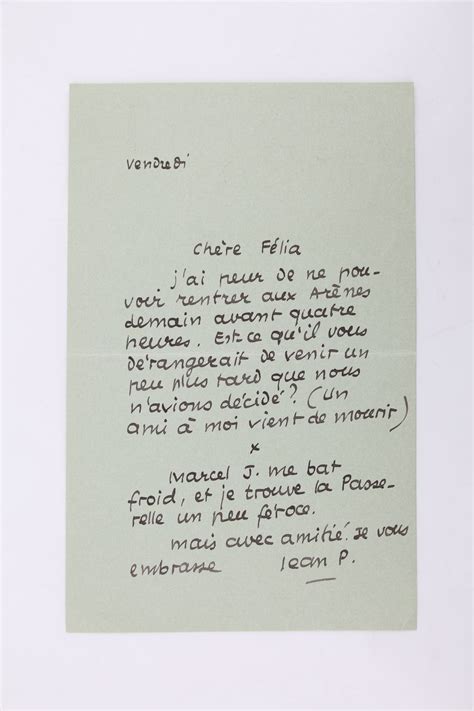 Vendredi
Chère Félia
j'ai peur de ne pou-
voir rentrer aux Arènes
demain avant quatre
heures. Est ce qu'il vous
dérangerait de venir un
peu plus tard que nous
n'avions décidé? (Un
ami à moi vient de mourir)
x
Marcel J. me bat
froid, et je trouve la Passe-
relle un peu féroce.
mais avec amitié. Je vous
embrasse Jean P.